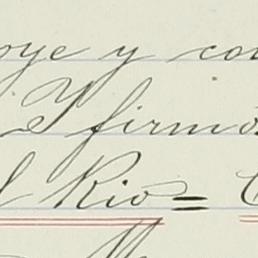 oye y con
Y firmo
l Rio=